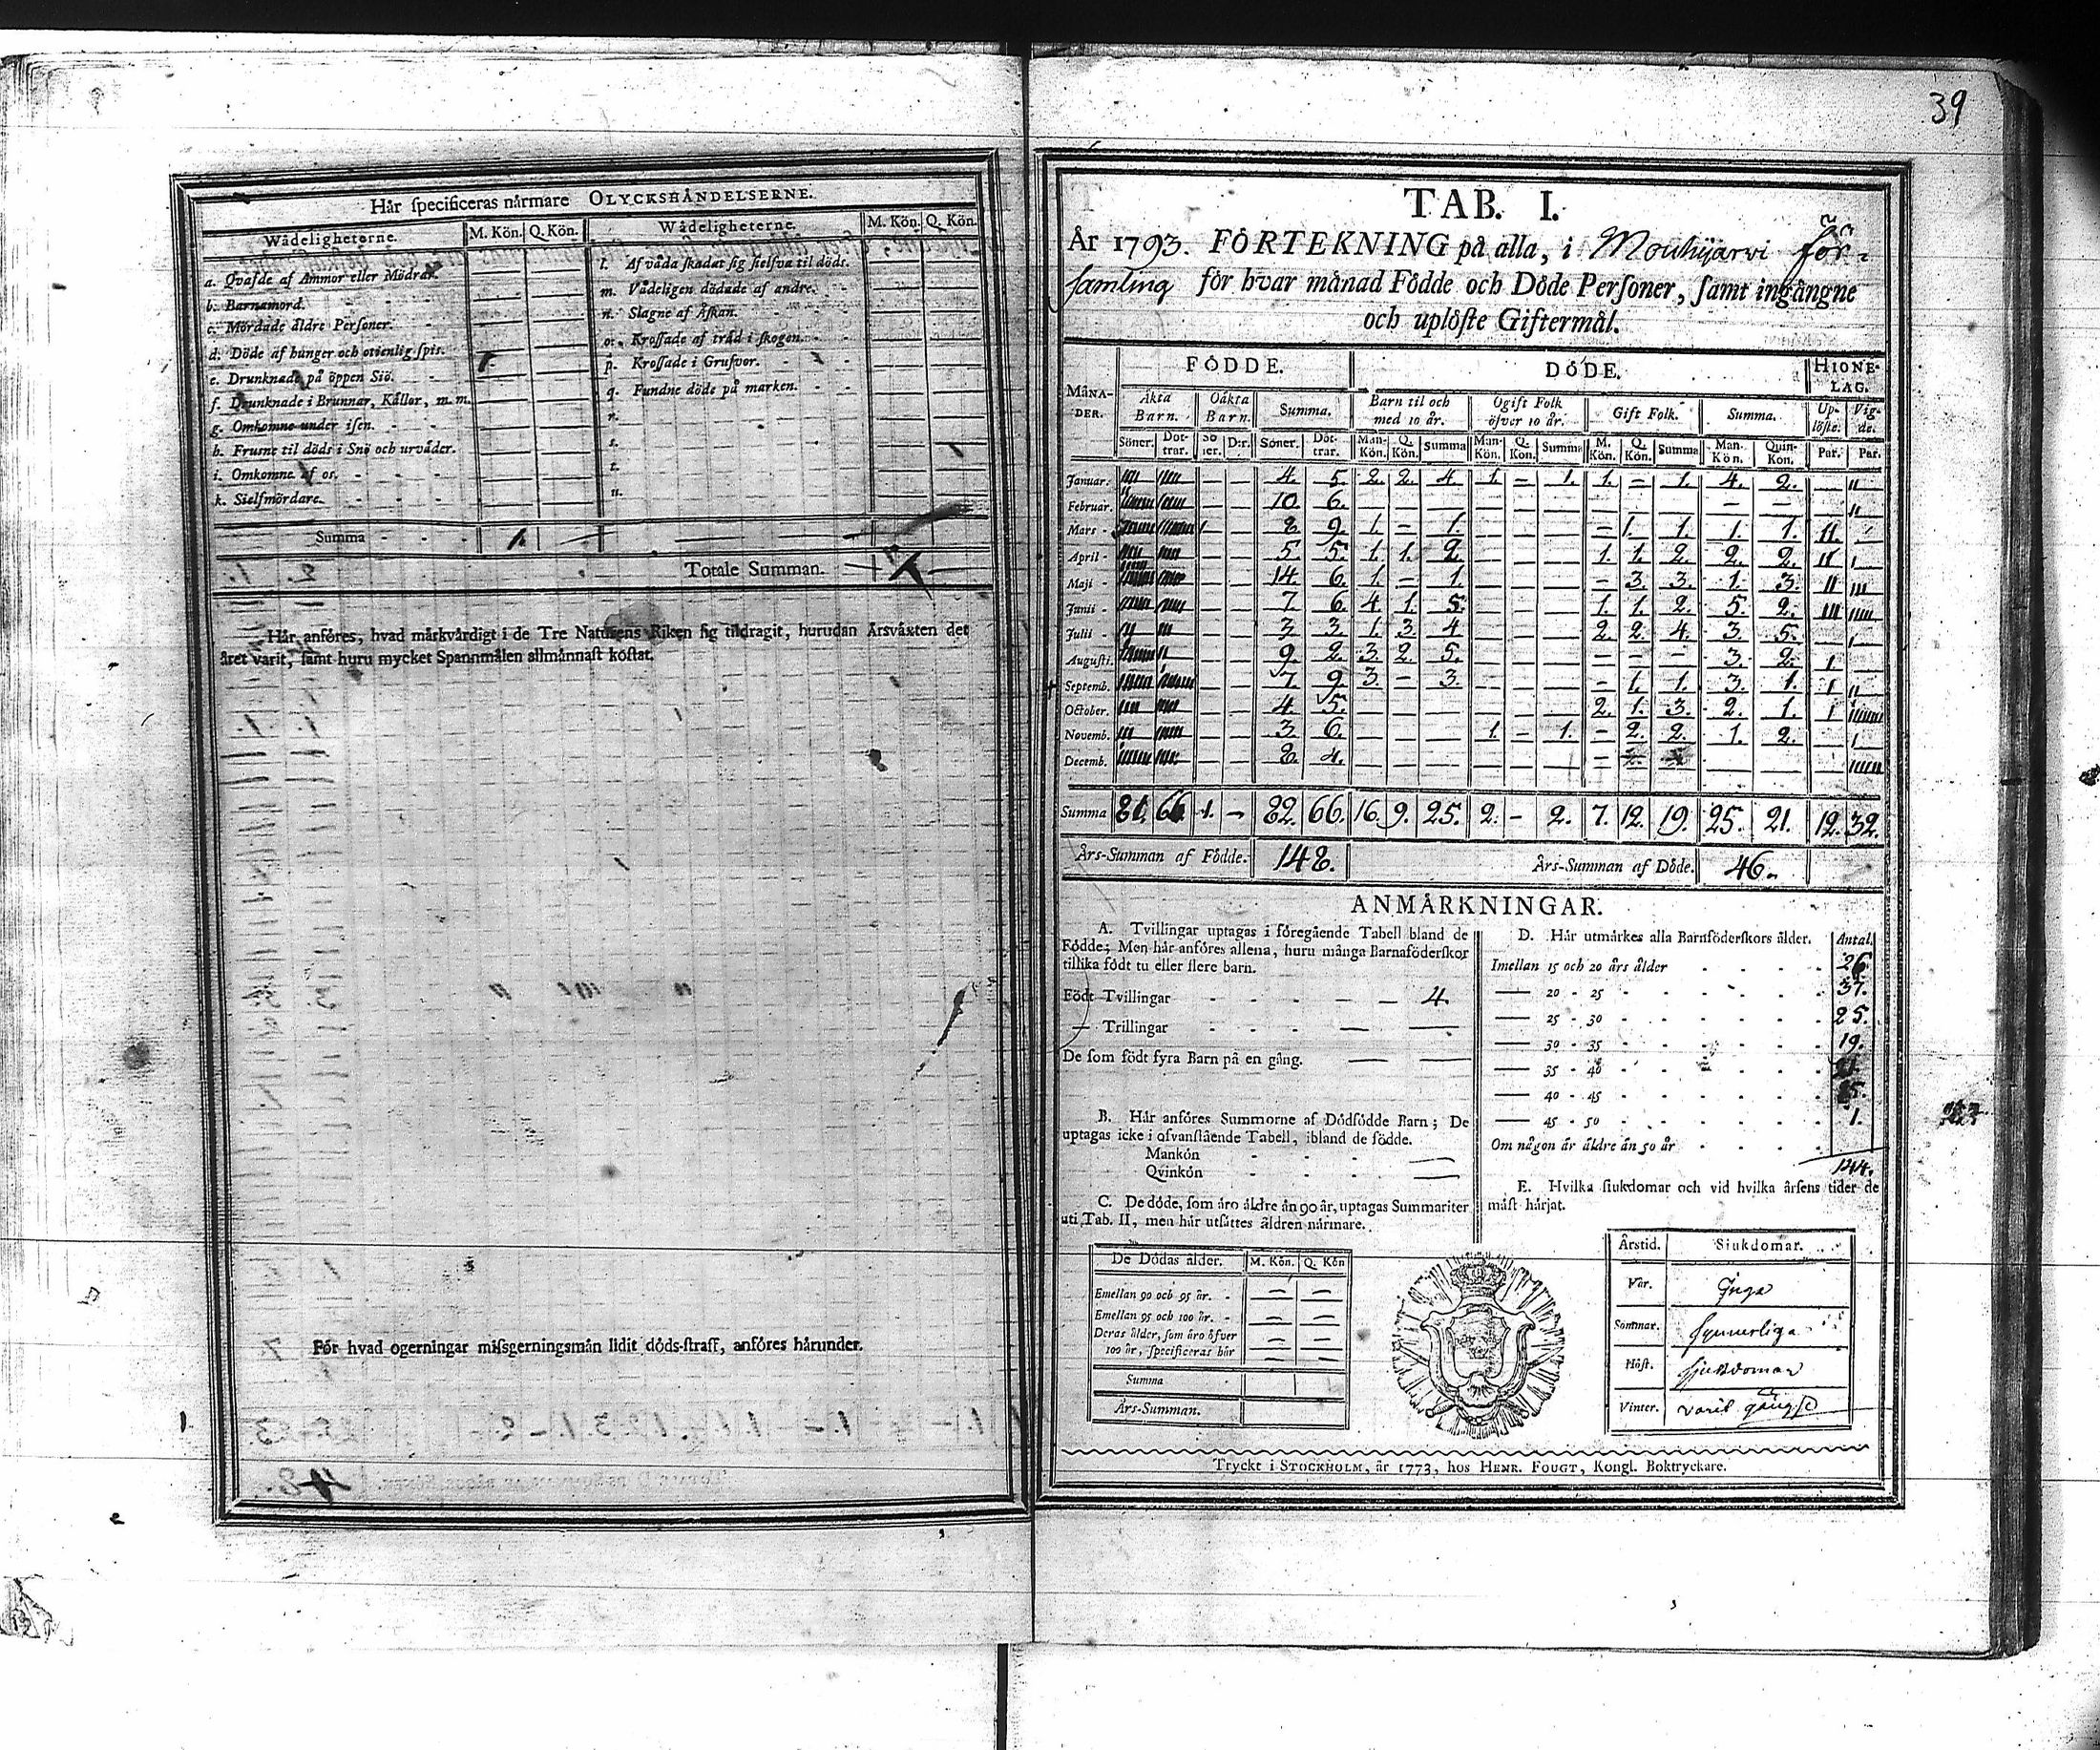 Här specificeras närmare OLYCKSHÄNDELSERNE.
Wådeligheterne. M. Kön. Q. Kön. Wådeligheterne. M. Kön. Q. Kön.
a. Qvafde af Ammor eller Mödrar.
b. Barnamord.
c. Mördade äldre Personer.
d. Döde af hunger och otienlig spis.
e. Drunknade på öppen Siö. 1.
f. Drunknade i Brunnar, Källor, m. m.
g. Omkomne under isen.
h. Frusne til döds i Snö och urväder.
i. Omkomne af os.
k. Sielfmördare.
l. Af våda skadat sig sielfva til döds.
m. Vådeligen dödade af andre.
n. Slagne af Åskan.
o. Krossade af träd i skogen.
p. Krossade i Grufvor.
q. Fundne döde på marken.
r.
s.
t.
u.
Summa 1.
Totale Summan. 1
Här anföres, hvad märkvärdigt i de Tre Naturens Riken sig tildragit, hurudan Årsväxten det
året varit, samt huru mycket Spannmålen allmännast kostat.
För hvad ogerningar missgerningsmän lidit döds-straff, anföres härunder.
39
TAB. I.
År 1793. FÖRTEKNING på alla, i Mouhijärvi för-
samling för hvar månad Födde och Döde Personer, samt ingångne
och uplöste Giftermål.
MÅNADER. FÖDDE. DÖDE. HIONELAG.
Äkta Barn. Oäkta Barn. Summa. Barn til och med 10 år. Ogift Folk öfver 10 år. Gift Folk. Summa. Uplöste. Vigde.
Söner. Döttrar. Söner. D:r. Söner. Döttrar. Man-Kön. Q. Kön. Summa Man-Kön. Q. Kön. Summa M. Kön. Q. Kön. Summa Man-Kön. Quin-Kon. Par. Par.
Januar. 4. 5. 2. 2. 4. 1. – 1. 1. – 1. 4. 2. — II
Februar. 10. 6. — — II
Mars 8. 9. 1. – 1. – 1. 1. 1. 1. II.
April 5. 5. 1. 1. 2. 1. 1. 2. 2. 2. II I
Maji 14. 6. 1. – 1. – 3. 3. 1. 3. II III
Junii 7. 6. 4. 1. 5. 1. 1. 2. 5. 2. III IIIII
Julii 3. 3. 1. 3. 4. 2. 2. 4. 3. 5. — I
Augusti. 9. 2. 3. 2. 5. – – – 3. 2. I
Septemb. 7. 9. 3. – 3. – 1. 1. 3. 1. I II
October. 4. 5. 2. 1. 3. 2. 1. I
Novemb. 3. 6. 1. – 1. – 2. 2. 1. 2. — I
Decemb. 8. 4.
Summa 81. 66. 1. – 82. 66. 16. 9. 25. 2. – 2. 7. 12. 19. 25. 21. 12. 32.
Års-Summan af Födde. 148. Års-Summan af Döde. 46.
ANMÄRKNINGAR.
A. Tvillingar uptagas i föregående Tabell bland de
Födde; Men här anföres allena, huru många Barnaföderskor
tillika födt tu eller flere barn.
Födt Tvillingar 4.
— Trillingar
De som födt fyra Barn på en gång.
B. Här anföres Summorne af Dödfödde Barn; De
uptagas icke i ofvanstående Tabell, ibland de födde.
Mankön
Qvinkön
C. De döde, som äro äldre än 90 år, uptagas Summariter
uti Tab. II, men här utsättes åldren närmare.
De Dödas ålder. M. Kön. Q. Kön
Emellan 90 och 95 år.
Emellan 95 och 100 år.
Deras ålder, som äro öfver
100 år, specificeras här
Summa
Års-Summan.
D. Här utmärkes alla Barnföderskors ålder. Antal.
Imellan 15 och 20 års ålder 26.
— 20 - 25 37.
— 25 - 30 25.
— 30 - 35 19.
— 35 - 40
— 40 - 45
— 45 - 50 1.
Om någon är äldre än 50 år
144.
E. Hvilka siukdomar och vid hvilka årsens tider de
mäst härjat.
Årstid. Siukdomar.
Vår. Inga
Sommar. synnerliga
Höst. sjukdomar
Vinter. varit gångse
Tryckt i STOCKHOLM, år 1773, hos HENR. FOUGT, Kongl. Boktryckare.